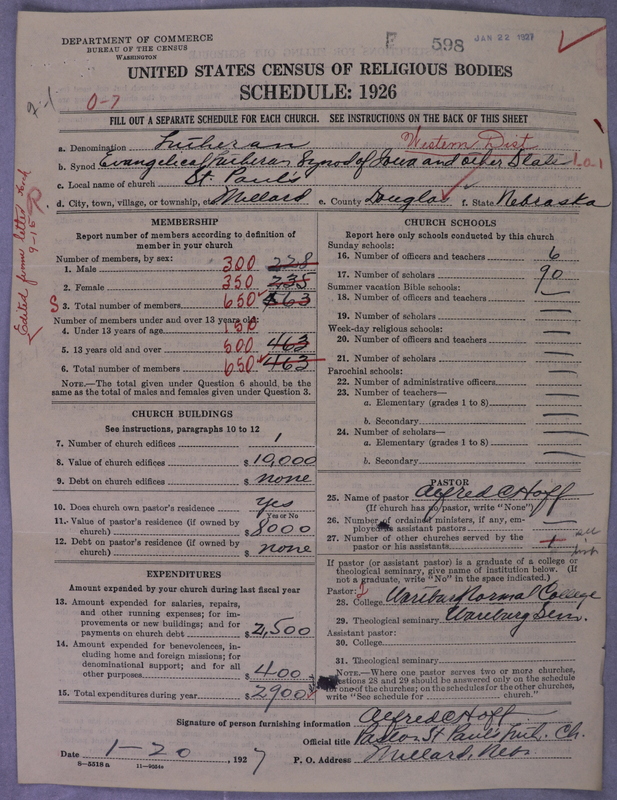 DEPARTMENT OF COMMERCE
BUREAU OF THE CENSUS
WASHINGTON
F 598 JAN 22 1927
UNITED STATES CENSUS OF RELIGIOUS BODIES
SCHEDULE: 1926
0-7
FILL OUT A SEPARATE SCHEDULE FOR EACH CHURCH. SEE INSTRUCTIONS ON THE BACK OF THIS SHEET
a. Denomination Lutheran Western Dist.
b. Synod Evangelical Lutheran Synod of Iowa and other States
c. Local name of church St. Paul's
d. City, town, village, or township, etc. Millard e. County Douglas f. State Nebraska
Edited from letter
9-15
MEMBERSHIP
Report number of members according to definition of
member in your church
Number of members, by sex:
1. Male 300 228
2. Female 350 235
3. Total number of members 650 463
Number of members under and over 13 years old:
4. Under 13 years of age 150
5. 13 years old and over 500 463
6. Total number of members 650 463
NOTE.—The total given under Question 6 should be the
same as the total of males and females given under Question 3.
CHURCH BUILDINGS
See instructions, paragraphs 10 to 12
7. Number of church edifices 1
8. Value of church edifices $ 10,000
9. Debt on church edifices $ none
10. Does church own pastor's residence? yes
Yes or No
11. Value of pastor's residence (if owned by
church) $ 8000
12. Debt on pastor's residence (if owned by
church) $ none
EXPENDITURES
Amount expended by your church during last fiscal year
13. Amount expended for salaries, repairs,
and other running expenses; for im-
provements or new buildings; and for
payments on church debt $ 2,500
14. Amount expended for benevolences, in-
cluding home and foreign missions; for
denominational support; and for all
other purposes $ 400
15. Total expenditures during year $ 2900
CHURCH SCHOOLS
Report here only schools conducted by this church
Sunday schools:
16. Number of officers and teachers 6
17. Number of scholars 90
Summer vacation Bible schools:
18. Number of officers and teachers —
19. Number of scholars —
Week-day religious schools:
20. Number of officers and teachers —
21. Number of scholars —
Parochial schools:
22. Number of administrative officers —
23. Number of teachers—
a. Elementary (grades 1 to 8) —
b. Secondary —
24. Number of scholars—
a. Elementary (grades 1 to 8) —
b. Secondary —
PASTOR
25. Name of pastor Alfred C Hoff
(If church has no pastor, write "None")
26. Number of ordained ministers, if any, em-
ployed as assistant pastors —
27. Number of other churches served by the
pastor or his assistants
If pastor (or assistant pastor) is a graduate of a college or
theological seminary, give name of institution below. (If
not a graduate, write "No" in the space indicated.)
Pastor:
28. College Wartburg Normal College
29. Theological seminary Wartburg Sem.
Assistant pastor:
30. College
31. Theological seminary
NOTE.—Where one pastor serves two or more churches,
questions 28 and 29 should be answered only on the schedule
for one of the churches; on the schedules for the other churches,
write "See schedule for church."
Signature of person furnishing information Alfred C Hoff
Official title Pastor St Paul's Luth. Ch.
Date 1-20, 1927 P. O. Address Millard, Nebr.
8-5518 a